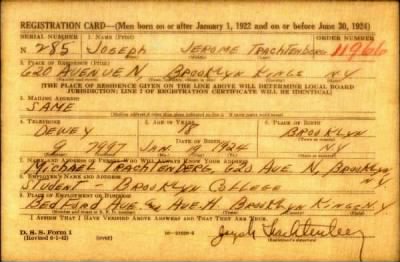 REGISTRATION CARD—(Men born on or after January 1, 1922 and on or before June 30, 1924)
SERIAL NUMBER 1. NAME (Print) ORDER NUMBER
N 285 JOSEPH JEROME TRACHTENBERG 11966
2. PLACE OF RESIDENCE (Print)
620 AVENUE N BROOKLYN KINGS NY
[THE PLACE OF RESIDENCE GIVEN ON THE LINE ABOVE WILL DETERMINE LOCAL BOARD
JURISDICTION; LINE 2 OF REGISTRATION CERTIFICATE WILL BE IDENTICAL]
3. MAILING ADDRESS
SAME
4. TELEPHONE 5. AGE IN YEARS 6. PLACE OF BIRTH
DEWEY 18 BROOKLYN
9 7997 JAN 19 1924 NY
7. NAME AND ADDRESS OF PERSON WHO WILL ALWAYS KNOW YOUR ADDRESS
MICHAEL TRACHTENBERG 620 AVE N, BROOKLYN NY
8. EMPLOYER'S NAME AND ADDRESS
STUDENT - BROOKLYN COLLEGE
9. PLACE OF EMPLOYMENT OR BUSINESS
BEDFORD AVE. & AVE H. BROOKLYN KINGS N.Y.
I AFFIRM THAT I HAVE VERIFIED ABOVE ANSWERS AND THAT THEY ARE TRUE.
D. S. S. Form 1
(Revised 6-1-42)
Joseph Trachtenberg